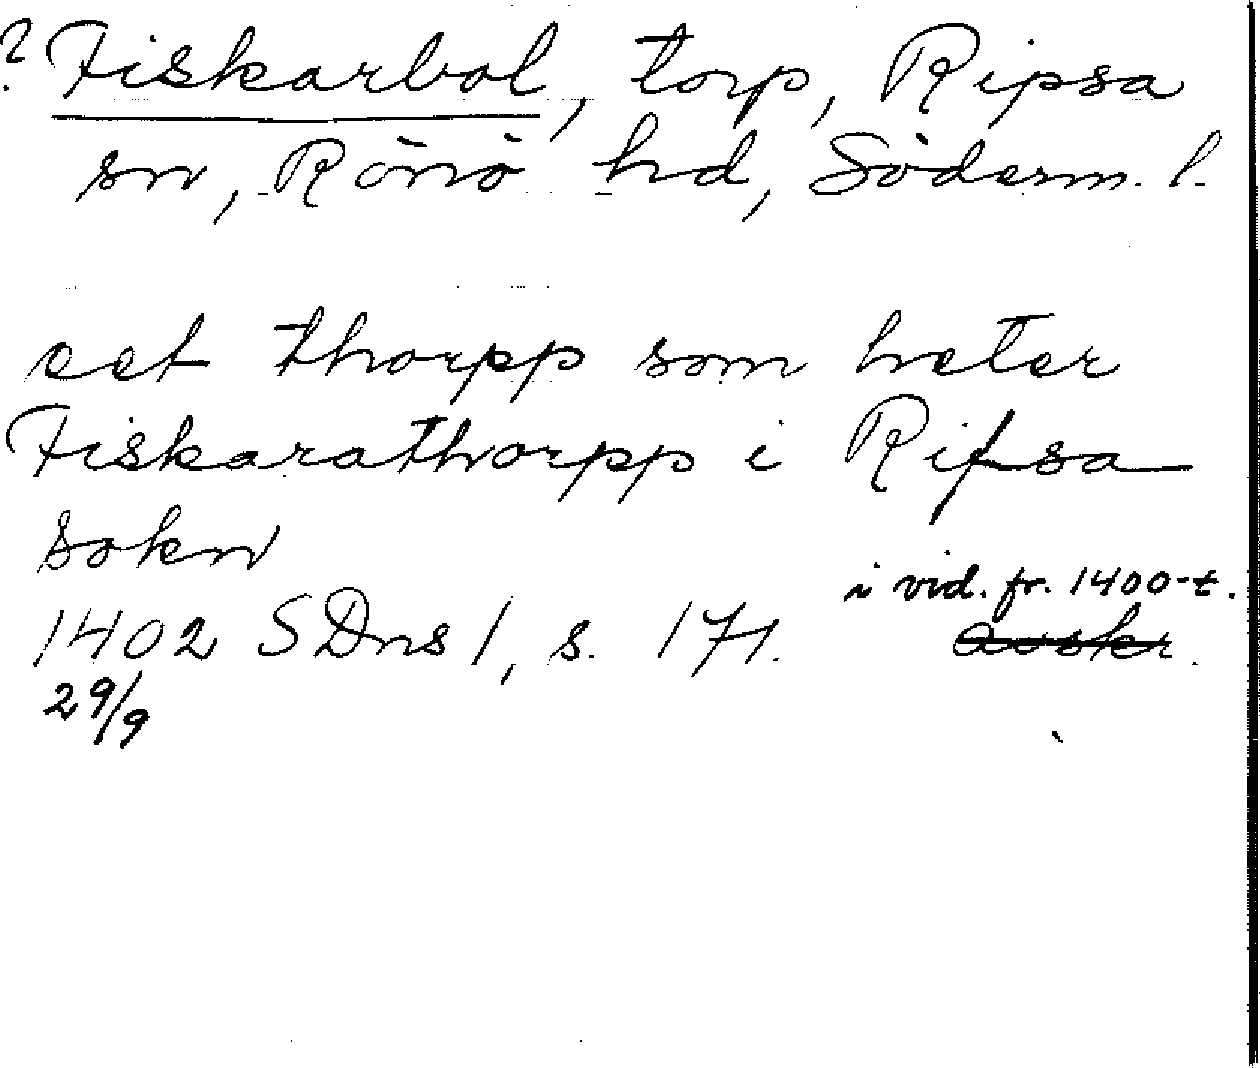 ? Fiskarbol, torp, Ripsa
sn, Rönö hd, Söderm. l.
eet thorpp som heter
Fiskarathorpp i Rifsa
sokn
i vid. fr. 1400-t.
1402 SDns 1, s. 171. avskr.
29/9